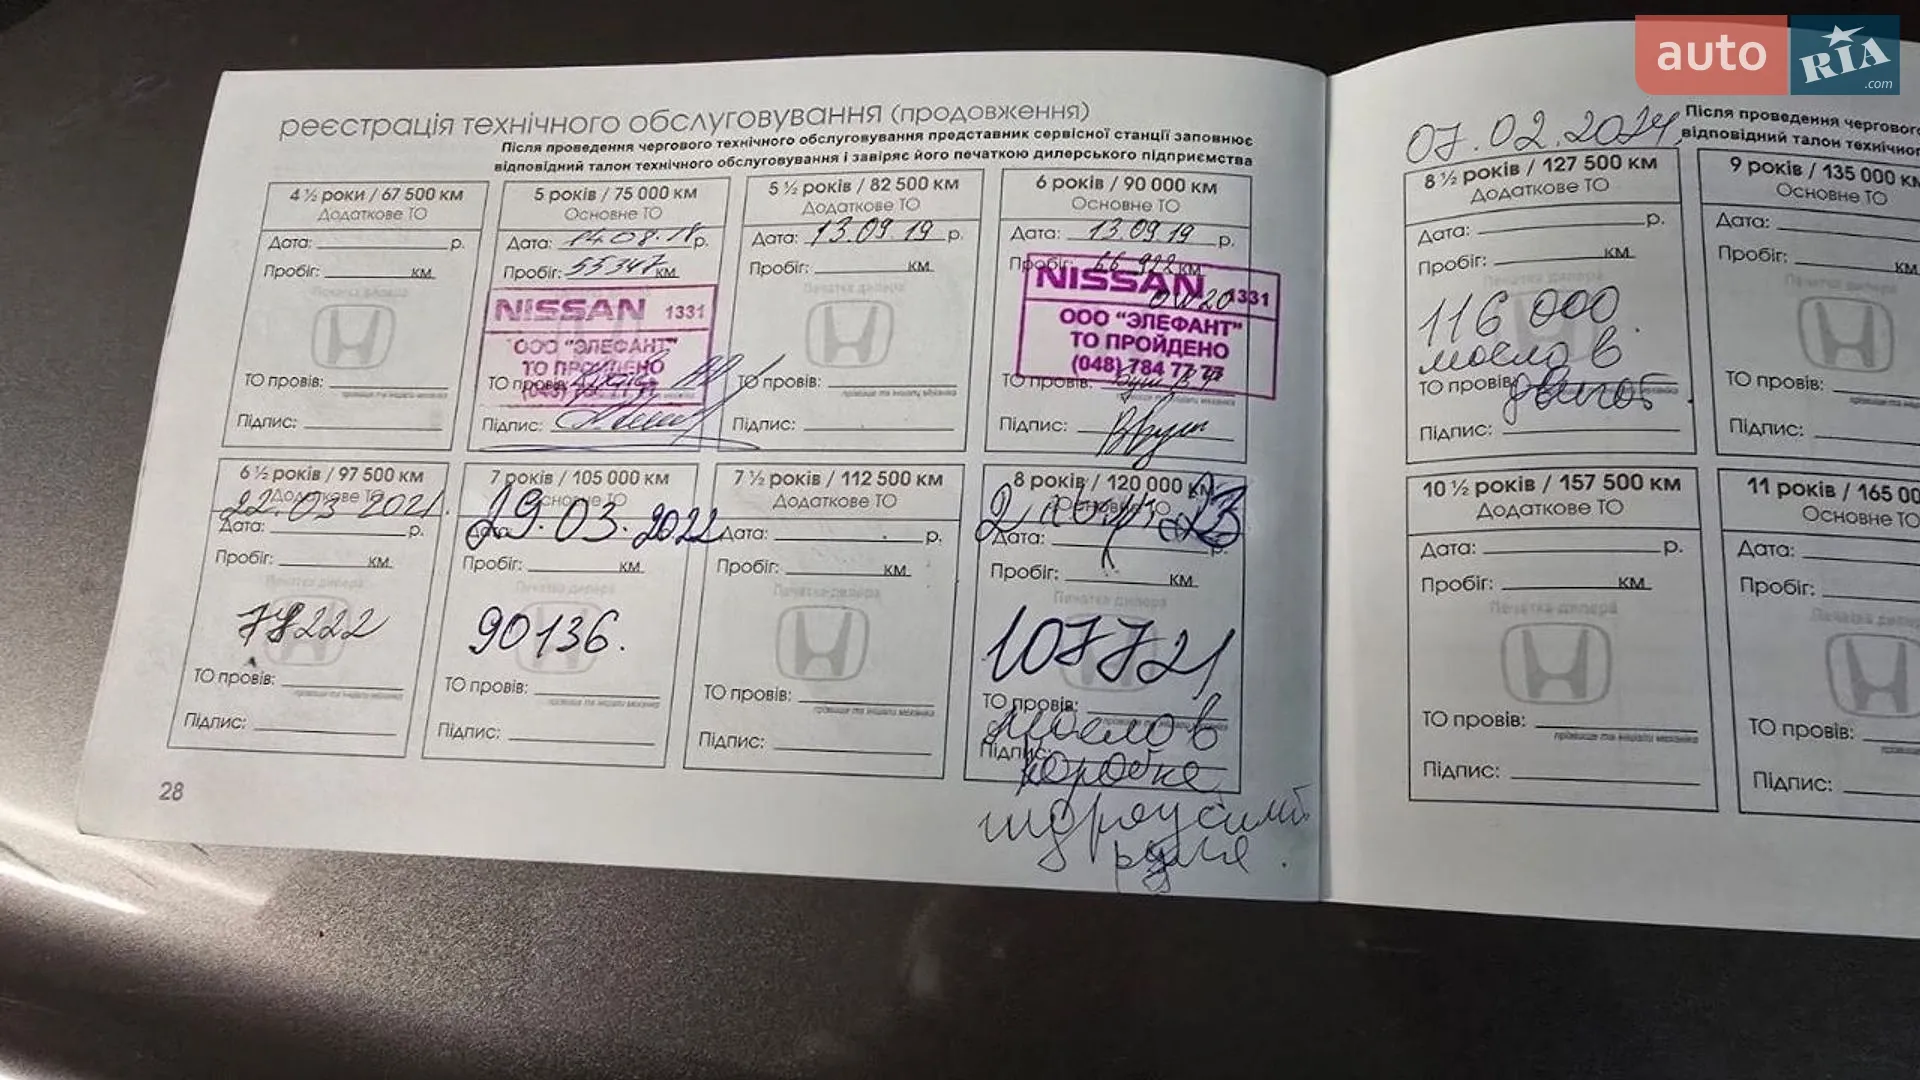 auto RIA .com
реєстрація технічного обслуговування (продовження)
Після проведення чергового технічного обслуговування представник сервісної станції заповнює
відповідний талон технічного обслуговування і завіряє його печаткою дилерського підприємства
4 ½ роки / 67 500 км
Додаткове ТО
Дата: р.
Пробіг: км
Печатка дилера
ТО провів:
прізвище та ініціали механіка
Підпис:
5 років / 75 000 км
Основне ТО
Дата: 14.08.18 р.
Пробіг: 55347 км
NISSAN 1331
ООО "ЭЛЕФАНТ"
ТО ПРОЙДЕНО
ТО провів:
Підпис:
5 ½ років / 82 500 км
Додаткове ТО
Дата: 13.09.19 р.
Пробіг: км
Печатка дилера
ТО провів:
прізвище та ініціали механіка
Підпис:
6 років / 90 000 км
Основне ТО
Дата: 13.09.19 р.
Пробіг: 66 922 км
NISSAN 1331
ООО "ЭЛЕФАНТ"
ТО ПРОЙДЕНО
(048) 784 77 73
ТО провів:
Підпис:
6 ½ років / 97 500 км
Додаткове ТО
22.03.2021.
Дата: р.
Пробіг: км
Печатка дилера
ТО провів:
прізвище та ініціали механіка
Підпис:
7 років / 105 000 км
Основне ТО
29.03.2022
Дата:
Пробіг: км
Печатка дилера
90136.
ТО провів:
прізвище та ініціали механіка
Підпис:
7 ½ років / 112 500 км
Додаткове ТО
Дата: р.
Пробіг: км
Печатка дилера
ТО провів:
прізвище та ініціали механіка
Підпис:
8 років / 120 000 км
Основне ТО
23
Дата: р.
Пробіг: км
Печатка дилера
107721
ТО провів:
масло в
Підпис:
коробке
гидроусилит
руля.
28
07.02.2024
Після проведення чергового
відповідний талон технічног
8 ½ років / 127 500 км
Додаткове ТО
Дата: р.
Пробіг: км
Печатка дилера
116 000
масло в
ТО провів:
двигат.
Підпис:
9 років / 135 000 км
Основне ТО
Дата:
Пробіг: км
Печатка дилера
ТО провів:
Підпис:
10 ½ років / 157 500 км
Додаткове ТО
Дата: р.
Пробіг: км
Печатка дилера
ТО провів:
прізвище та ініціали механіка
Підпис:
11 років / 165 00
Основне ТО
Дата:
Пробіг:
Печатка дилера
ТО провів:
Підпис: